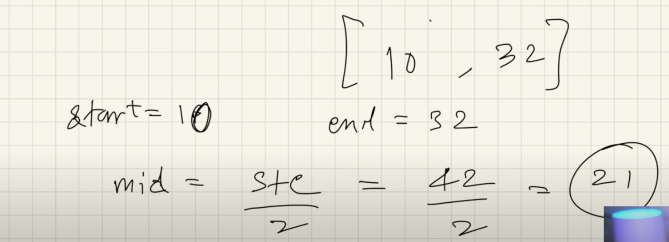 [10, 32]
start = 10 end = 32
mid = s+e/2 = 42/2 = 21